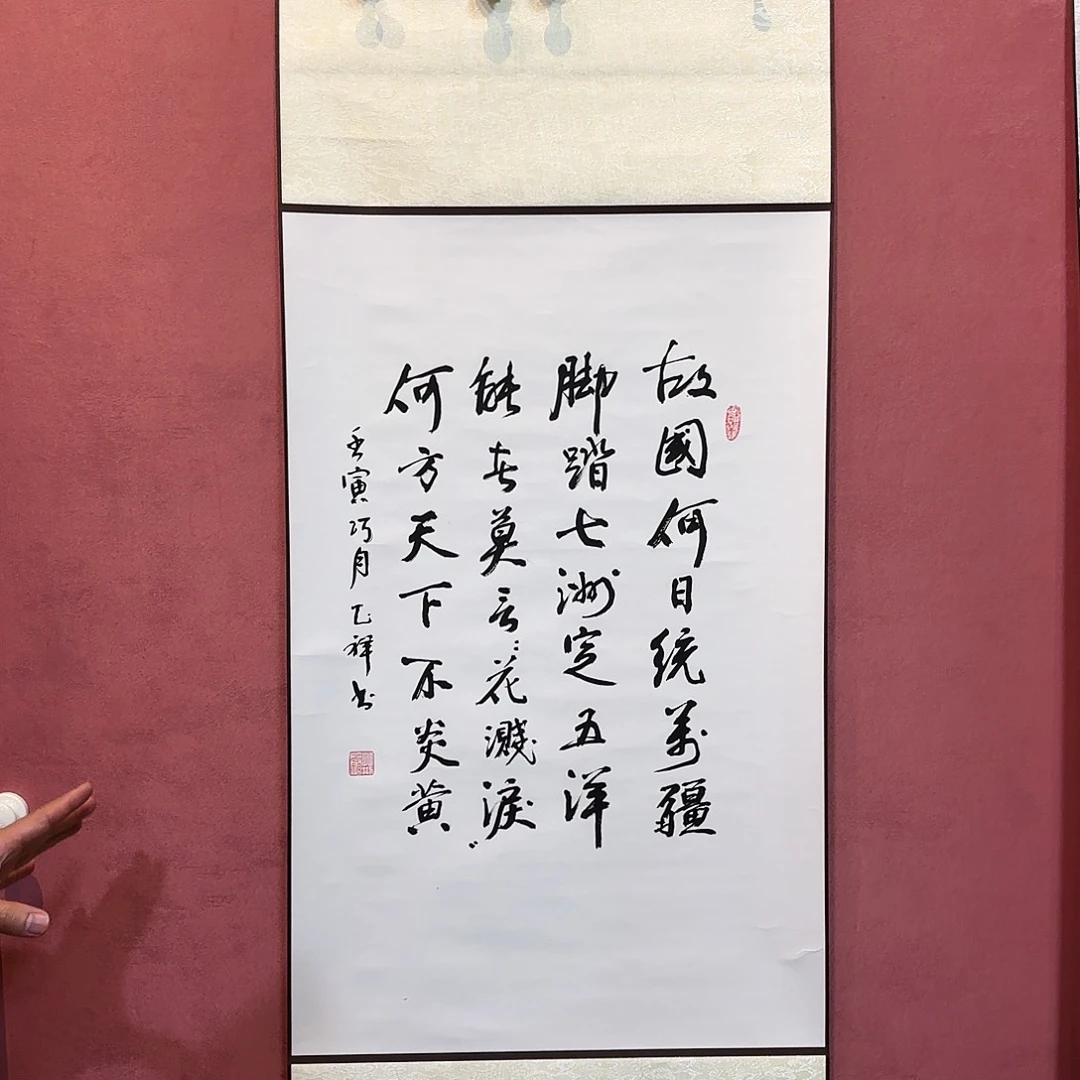 故國何日統萬疆
脚踏七洲定五洋
能莫言“花濺淚”
何方天下不炎黄
壬寅巧月 祥书